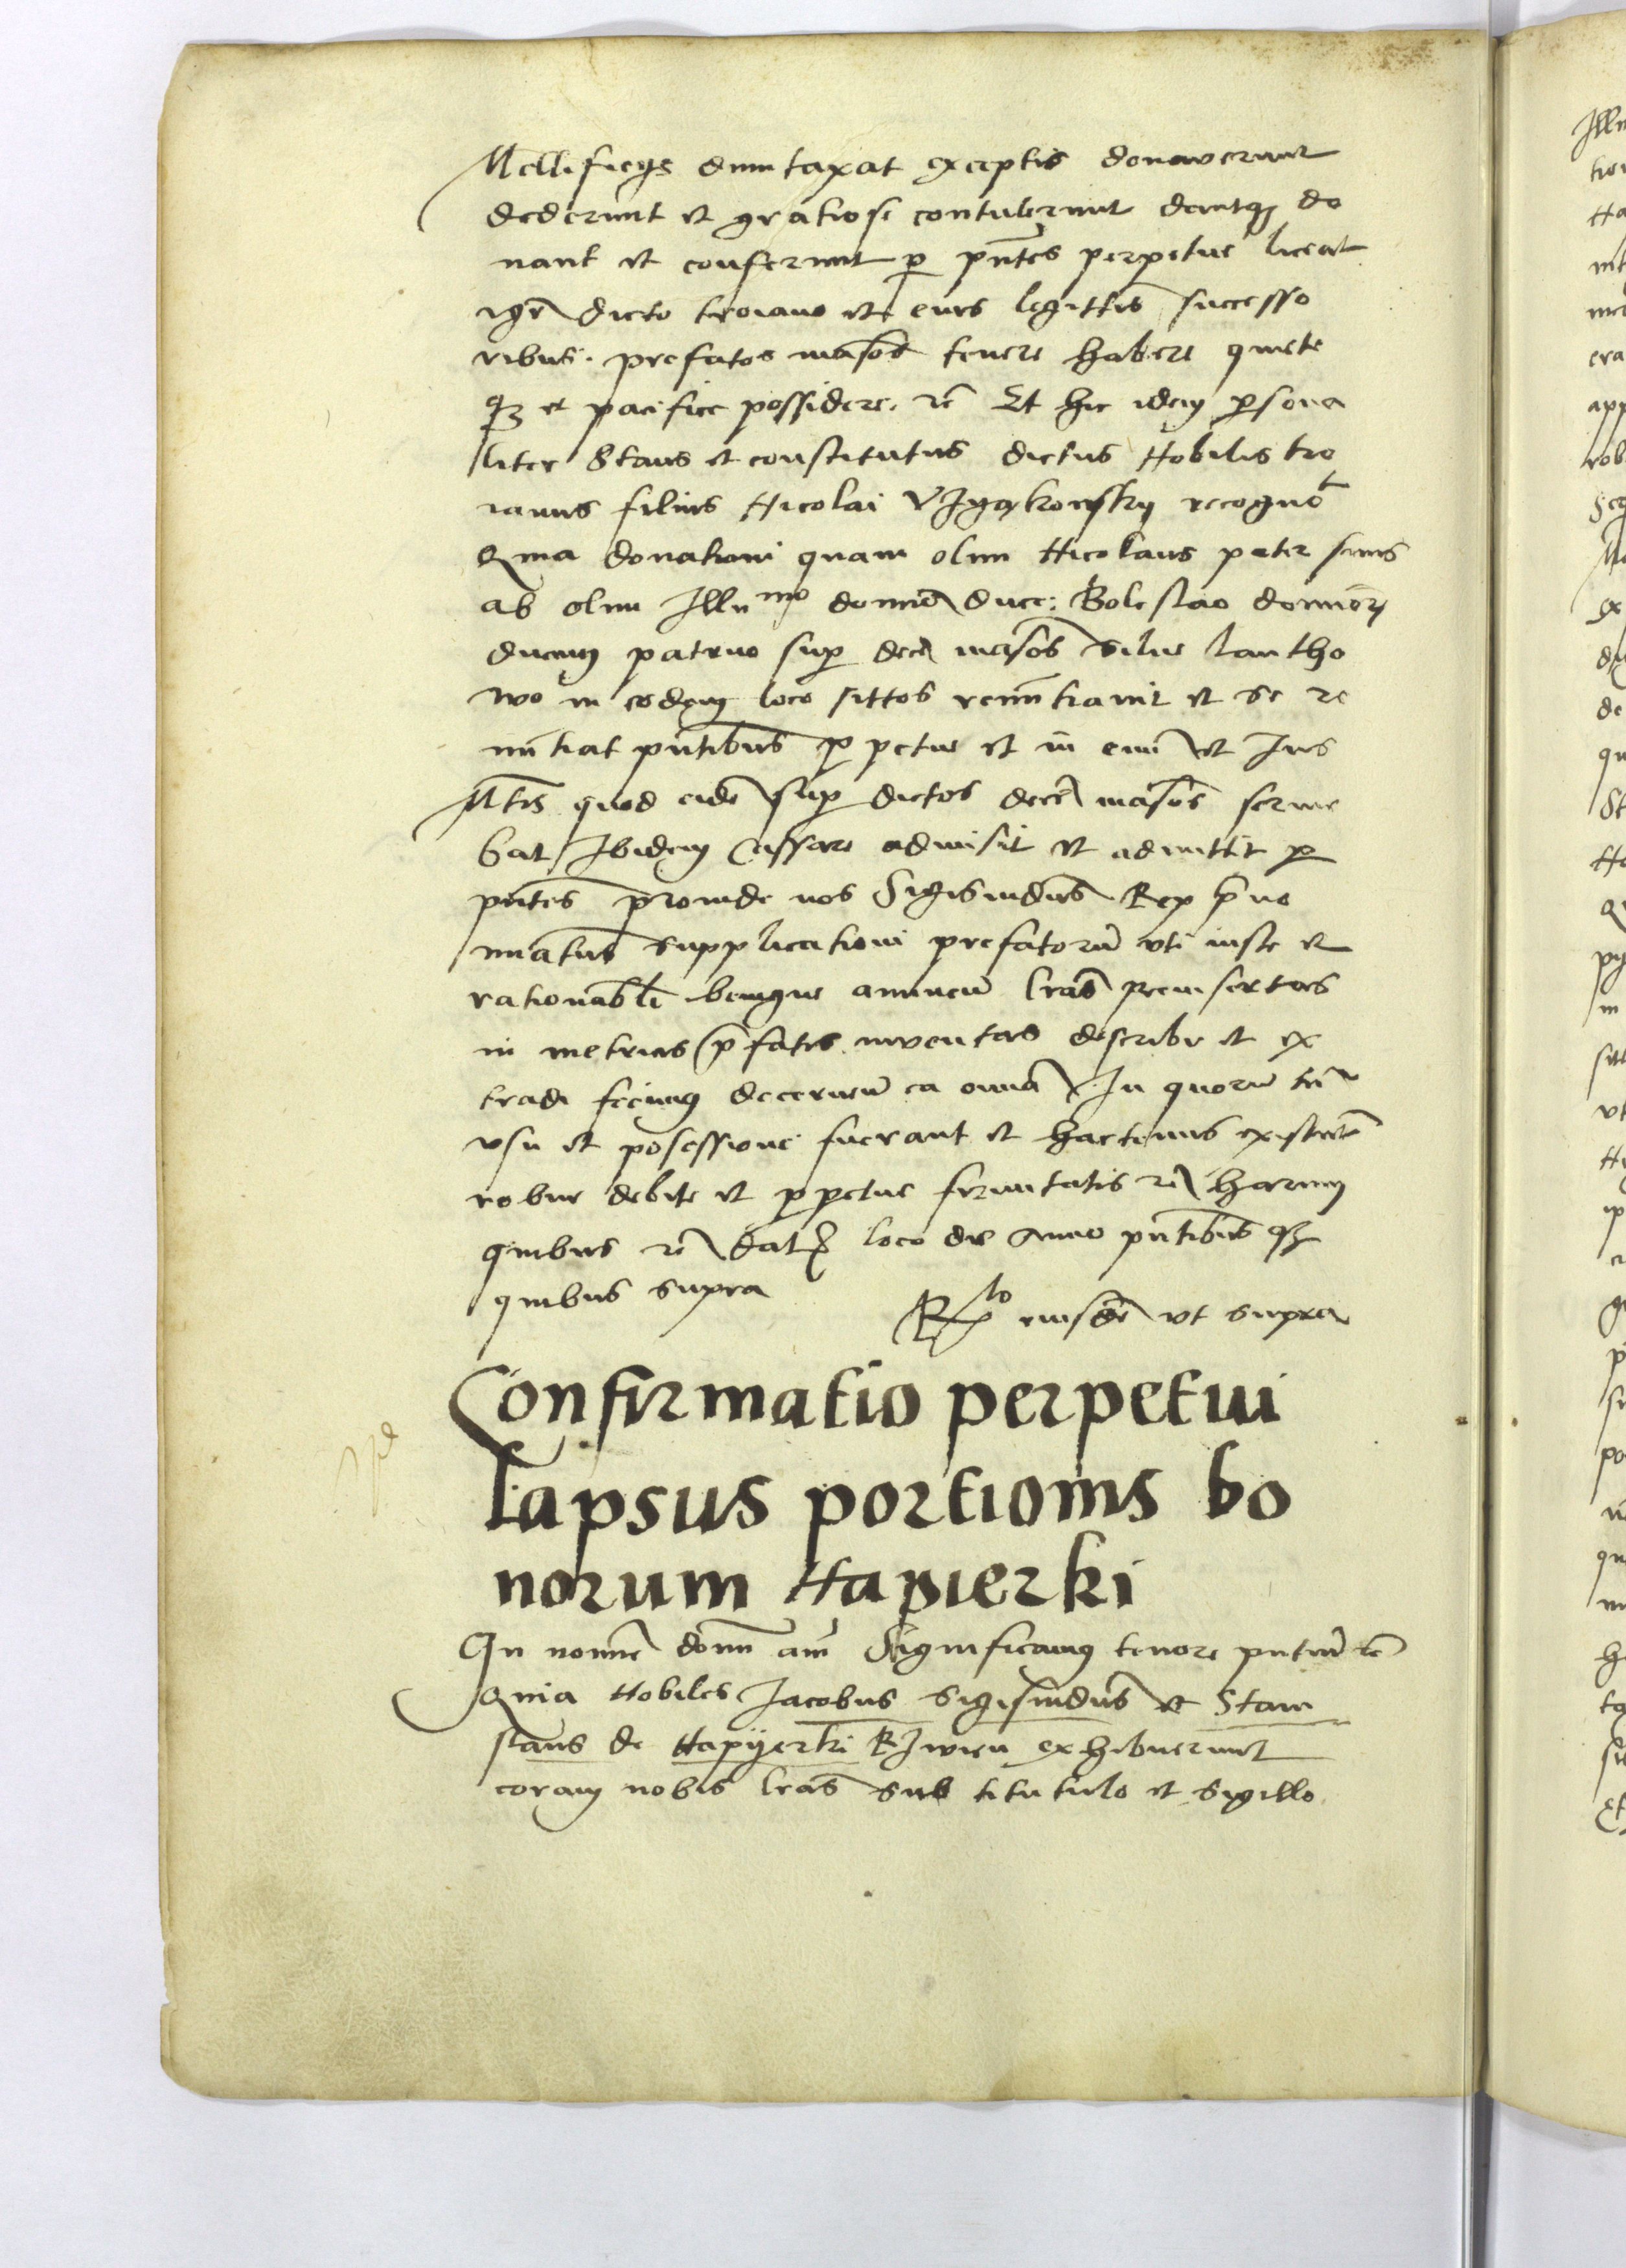 Mellificys dumtaxat exceptis donaverunt
dederunt et gratiose contulerunt dantq3 do
nant et conferunt p pntes perpetue liceat
igr dicto troiano et eius legittis successo
ribus. prefatos mansos tenere habere quiete
q3 et pacifice possidere. rc Et hic idem psona
liter Stans et constitutus dictus Nobilis tro
ianus filius Nicolai recognot
Quia donationi quam olim Nicolaus pater suus
ab olim Illumo domno duce: Boleslao domnor
ducum patruo sup dece mansos silve lantho
wo in eodem loco sittos renuntiavit et se re
nuntiat pntibus ppetue et in eum et Ius
quod eide sup dictos dece mansos servie
bat Ibidem Cassare admisit et admittit p
pntes proinde nos Sigismdus Rex pno
miatus supplicationi prefatoru uti iuste et
rationabli benigne annueu lras preinsertas
in metricis pfatis inventas describi et ex
tradi fecimus decerneu ea omnia In quoru tn
usu et posessione fuerant et hactenus existeten
robur debite et ppetue firmitatis rc harum
quibus rc Dat loco die Anno pntibus q3
quibus supra
Rlo eiusde ut supra
Confirmatio perpetui
lapsus portionis bo
norum Napierki
In nomie domi am Significamus tenore pntiu rc
Quia Nobiles Jacobus Sigismdus et Stani
slaus de Napyerki exhibuerunt
coram nobis lras sub titutulo et sigillo